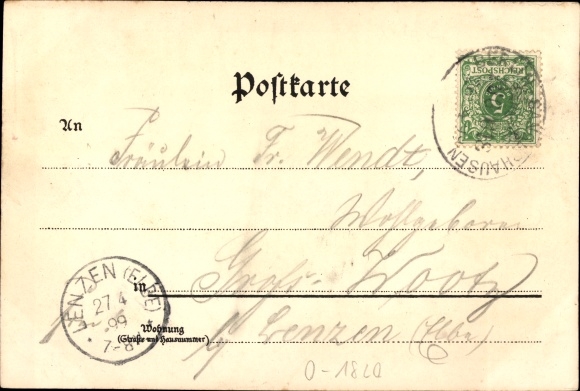 Postkarte
REICHSPOST
5
HAUSEN
An
Fräulein Fr. Wendt,
Wohlgeboren
Groß-Wootz
in
b/ Lenzen (Elbe)
LENZEN (ELBE)
27 4
99
7-8
Wohnung
(Straße und Hausnummer)
O-1820